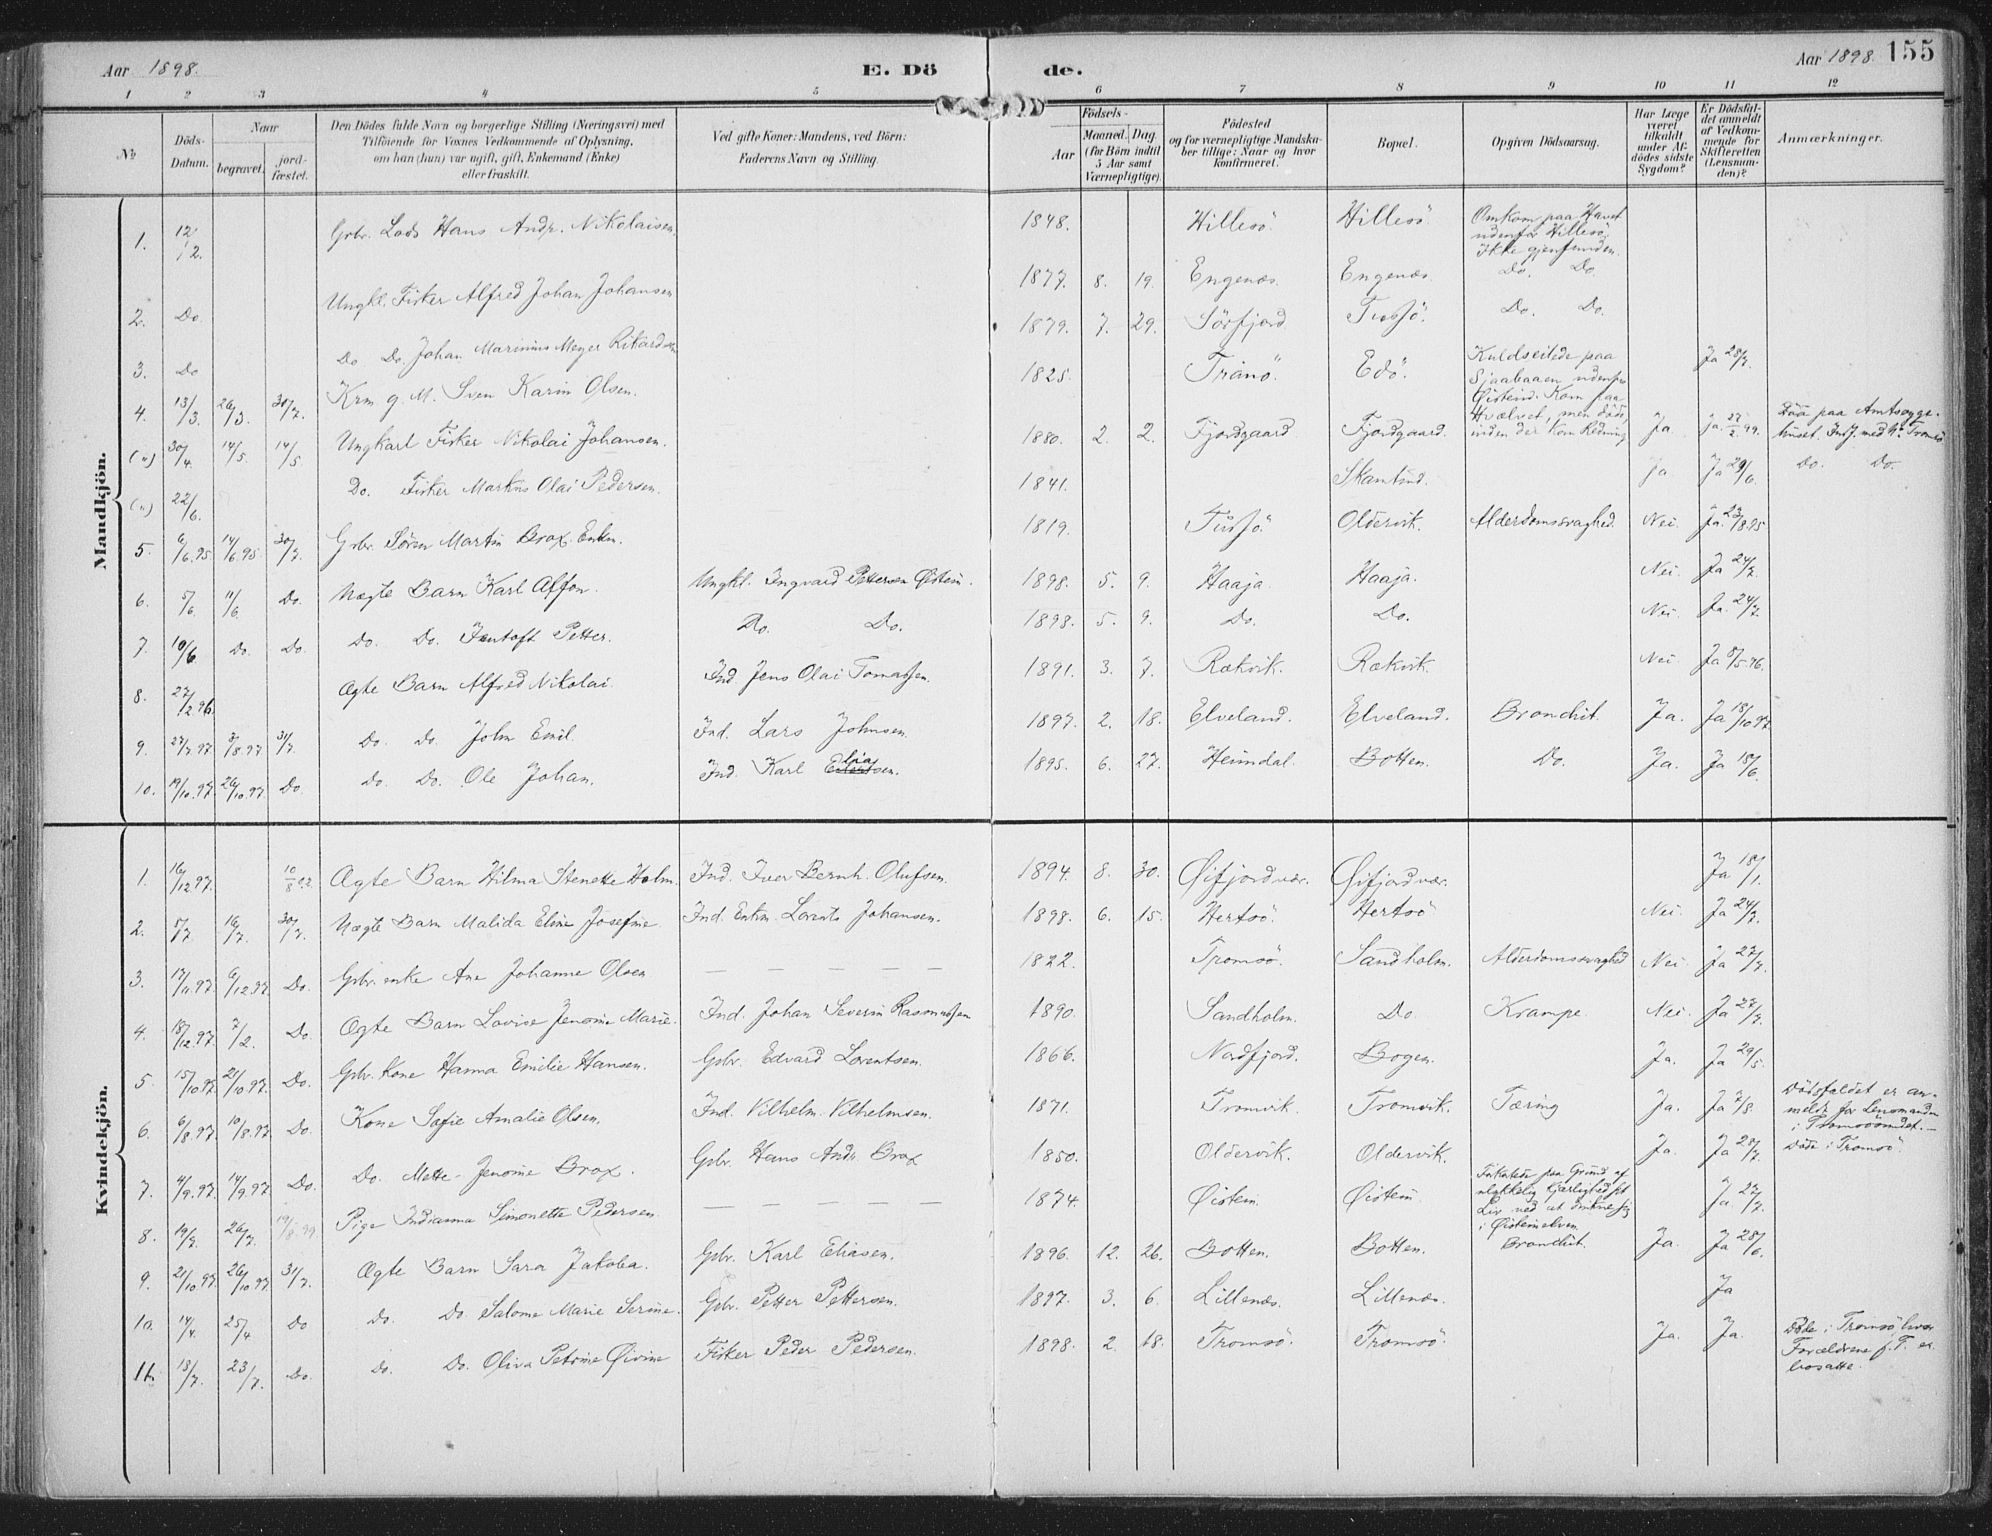 Aar 1898. E. Dö de. Aar 1898. 155
1 2 3 4 5 6 7 8 9 10 11 12
№ Döds-Datum. Naar begravet. jord-fæstet. Den Dödes fulde Navn og borgerlige Stilling (Næringsvei) med Tilföiende for Voxnes Vedkommende af Oplysning, om han (hun) var ugift, gift, Enkemand (Enke) eller fraskilt. Ved gifte Koner: Mandens, ved Börn: Faderens Navn og Stilling. Födsels- Aar Maaned. Dag. (for Börn indtil 5 Aar samt Værnepligtige). Födested og for værnepligtige Mandskaber tillige: Naar og hvor konfirmeret. Bopæl. Opgiven Dödsaarsag. Har Læge været tilkaldt under Afdödes sidste Sygdom? Er Dödsfaldet anmeldt af Vedkommende for Skifteretten (Lensmanden)? Anmærkninger.
Mandkjön.
1. 12/2. Gbr. Lods Hans Andr. Nikolaisen. 1848. Hillesö. Hillesö. Omkom paa Havet udenfor Hillesö. Ikke gjenfunden.
2. Do. Ungkl. Fisker Alfred Johan Johansen 1877. 8. 19. Engenæs. Engenæs. Do. Do.
3. Do Do Do. Johan Marinius Meyer Rikardsen 1879. 7. 29. Sörfjord Tussö. Do. Do.
4. 13/3. 26/3. 30/7. Krm g. M. Sven Karin Olsen. 1825. Tranö. Edö. Kuldseilede paa Sjaabaaen udenfor Öistein. Kom paa Hvælvet, men döde, inden der kom Redning Ja 28/7.
(") 30/4. 14/5. 14/5 Ungkarl Fisker Nikolai Johansen. 1880. 2. 2. Fjordgaard Fjordgaard. Ja Ja. 27/2 99. Död paa Amtssygehuset. Indf. med № Tromsö
(") 22/6. Do. Fisker Markus Olai Pedersen. 1841. Skamtind. Ja Ja 29/6. Do. Do.
5. 6/6.95 14/6.95. 30/7. Gbr. Sören Martin Brox. Enkm. 1819. Tussö. Oldervik. Alderdomssvaghed. Nei. Ja 23/8.95
6. 5/6. 11/6 Do. Uægte Barn Karl Alfon. Ungkl. Ingvard Pettersen Öistein. 1898. 5. 9. Haaja. Haaja. Nei. Ja 24/7.
7. 10/6 Do. Do. Do. Do. Jentoft Petter. Do. Do. 1898. 5. 9. Do. Do. Nei Ja. 24/7.
8. 27/2.96. Ægte Barn Alfred Nikolai. Ind. Jens Olai Tomassen. 1891. 3. 7. Rækvik. Rækvik. Nei Ja 8/5.96.
9. 27/7.97. 3/8.97. 31/7. Do. Do. John Emil Ind. Lars Johnsen. 1897. 2. 18. Elveland. Elveland. Bronchit. Ja. Ja 18/10.97
10. 19/10.97. 26/10.97. Do. Do. Do. Ole Johan. Ind. Karl Eliasen. 1895. 6. 27. Heimdal. Botten. Do. Ja. Ja 18/6.
Kvindekjön.
1. 16/12.97. 10/8 02. Ægte Barn Hilma Stenette Holm. Ind. Iver Bernh. Olufsen. 1894. 8. 30. Öifjordvær. Öifjordvær. Ja 18/1.
2. 5/7. 16/7. 30/7. Uægte Barn Malida Eline Josefine Ind. Enkm. Lorents Johansen. 1898. 6. 15. Hertsö. Hertsö Nei. Ja 24/7.
3. 17/11.97. 6/12.97 Do. Gbr. enke Ane Johanne Olsen — — — — — 1822. Tromsö. Sandholm. Alderdomssvaghed Nei. Ja 27/7.
4. 18/12.97. 7/2. Do. Ægte Barn Lovise Jensine Marie. Ind. Johan Severin Rasmussen 1890. Sandholm. Do Krampe. Nei. Ja 27/7.
5 15/10.97. 21/10.97. Do. Gbr. Kone Hanna Emilie Hansen. Gbr. Edvard Lorentsen. 1866. Nordfjord. Bogen. Ja. Ja 29/5.
6. 6/8.97. 10/8.97. Do. Kone Sofie Amalie Olsen. Ind. Vilhelm Vilhelmsen. 1871. Tromvik. Tromvik. Tæring Ja. Ja 7/8. Dödsfaldet er anmeldt for Lensmanden i Tromsösundet. —
7. 4/9.97. 14/9.97. Do. Do. Mette Jensine Brox. Gbr. Hans Andr. Brox 1850. Oldervik. Oldervik. Ja. Ja 28/7. Döde i Tromsö.
8. 19/7. 26/7. 19/8.99. Pige Indianna Simonette Pedersen. — — — — — 1874. Öistein. Öistein paa Grund af ulykkelig Kjærlighed sit Liv ved at drukne sig i Öisteinelven. Ja 27/7.
9. 21/10.97. 26/10.97 31/7. Ægte Barn Sara Jakoba. Gbr. Karl Eliasen. 1896. 12. 26. Botten. Botten. Bronchit. Ja. Ja 28/6.
10. 14/4. 25/4 Do Do. Do. Salome Marie Serine. Gbr. Petter Pettersen. 1897. 3. 6. Lillenæs. Lillenæs. Ja
11. 18/7. 23/7. Do. Do. Do. Oliva Petrine Öivine Fisker Peder Pedersen. 1898. 2. 18. Tromsö. Tromsö. Ja. Ja. Döde i Tromsö hvor Forældrene f. T. er bosatte.